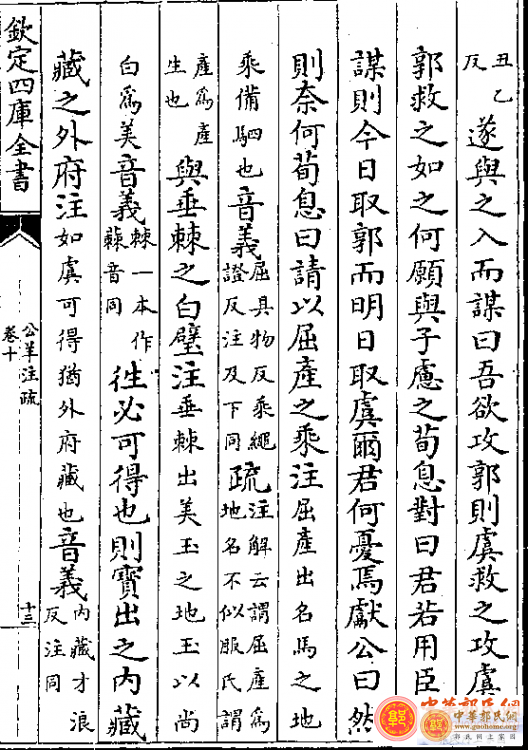 丑乙
反
遂與之入而謀曰吾欲攻郭則虞救之攻虞則
郭救之如之何願與子慮之荀息對曰君若用臣之
謀則今日取郭而明日取虞爾君何憂焉獻公曰然
則奈何荀息曰請以屈產之乘注屈產出名馬之地
乘備駟也音義屈具物反乘繩
證反注及下同疏注解云謂屈產為
地名不似服氏謂
產為產
生也
與垂棘之白璧注垂棘出美玉之地玉以尚
白為美音義棘一本作
蕀音同
往必可得也則寶出之內藏
藏之外府注如虞可得猶外府藏也音義內藏才浪
反注同
欽定四庫全書
公羊注疏
卷十
十三
中華郭氏網